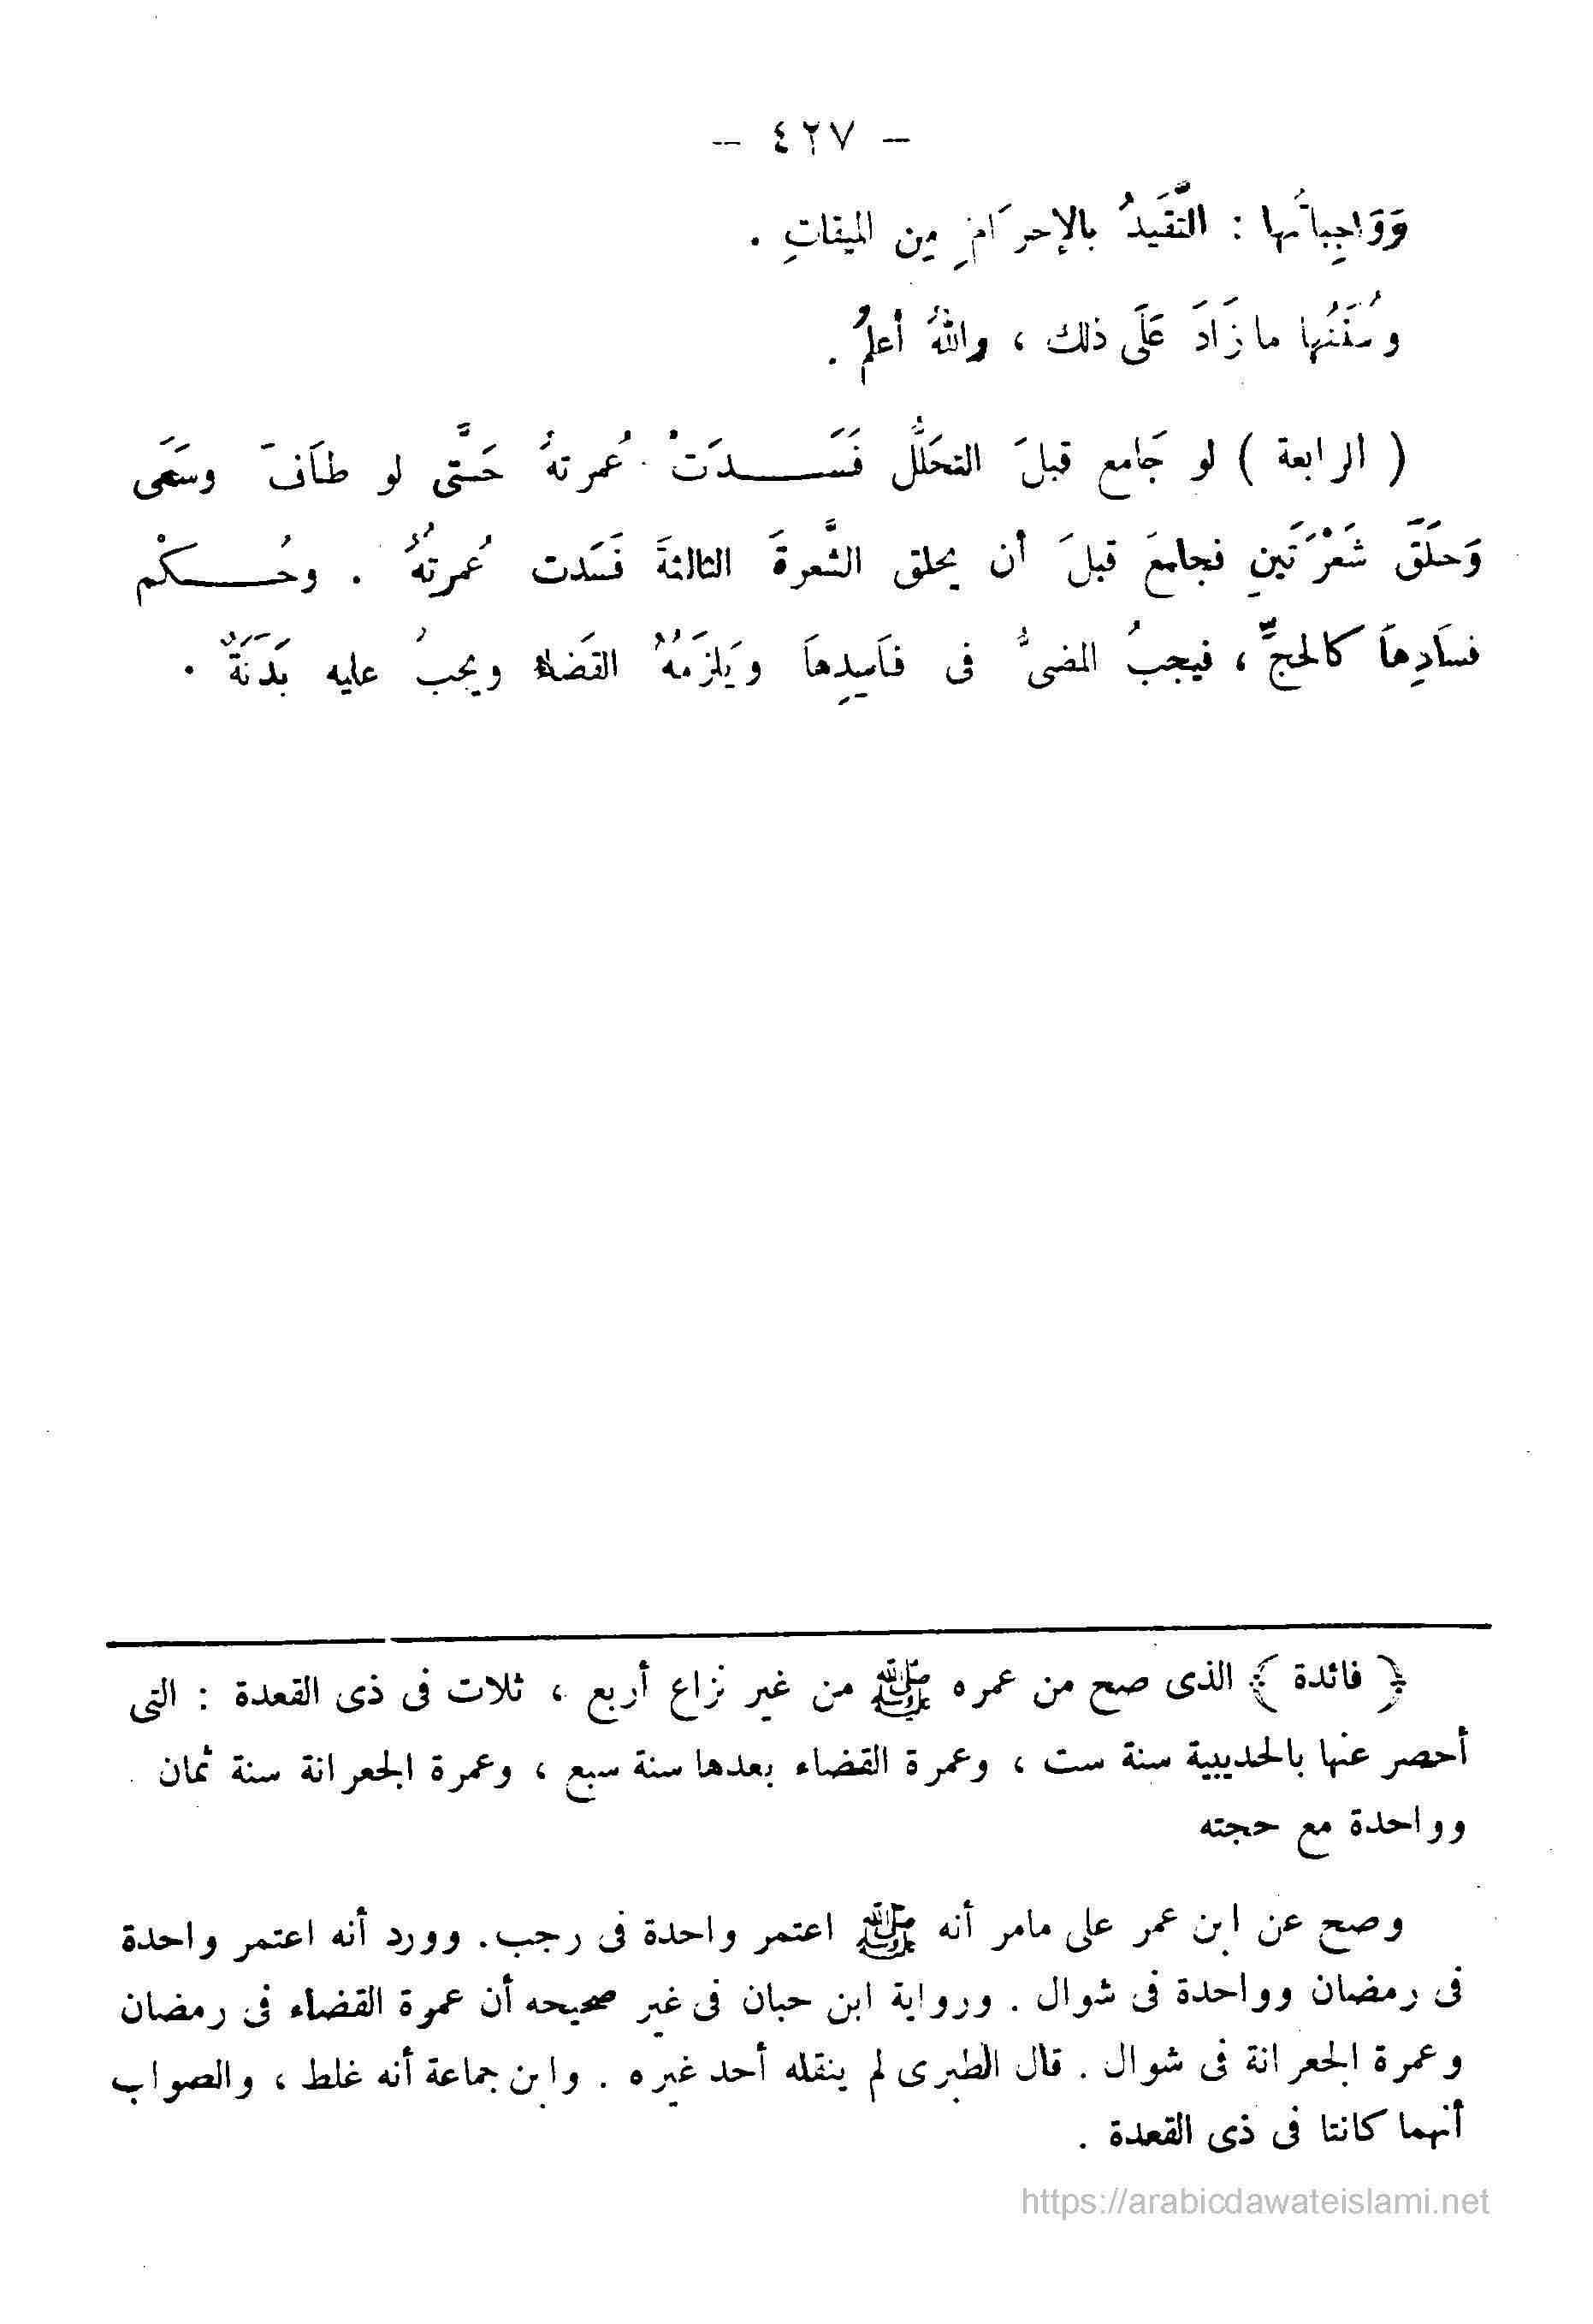 — ٤٢٧ —
وَوَاجِباتُها : التَّقَيدُ بالإحرَامِ مِن الميقاتِ .
وسُنَنُها مازَادَ عَلَى ذلك ، واللهُ أعلمُ .
( الرابعة ) لو جَامع قبلَ التحَلُّل فَسَدَتْ عُمرتهُ حَتَّى لو طاَفَ وسَعَى
وَحلَقَ شَعْرَتَينِ فجامعَ قبلَ أن يحلق الشَّعرةَ الثالثةَ فَسَدت عُمرتُهُ . وحُكْم
فسَادِهاَ كالحجِّ ، فيجبُ المضىُّ فى فاَسِدِهاَ ويَلزَمُهُ القَضاء ويجبُ عليه بَدَنَةٌ .
﴿ فائدة ﴾ الذى صح من عمره ﷺ من غير نزاع أربع ، ثلاث فى ذى القعدة : التى
أحصر عنها بالحديبية سنة ست ، وعمرة القضاء بعدها سنة سبع ، وعمرة الجعرانة سنة ثمان .
وواحدة مع حجته
وصح عن ابن عمر على مامر أنه ﷺ اعتمر واحدة فى رجب. وورد أنه اعتمر واحدة
فى رمضان وواحدة فى شوال . ورواية ابن حبان فى غير صحيحه أن عمرة القضاء فى رمضان
وعمرة الجعرانة فى شوال . قال الطبرى لم ينقله أحد غيره . وابن جماعة أنه غلط ، والصواب
أنهما كانتا فى ذى القعدة .
https://arabicdawateislami.net